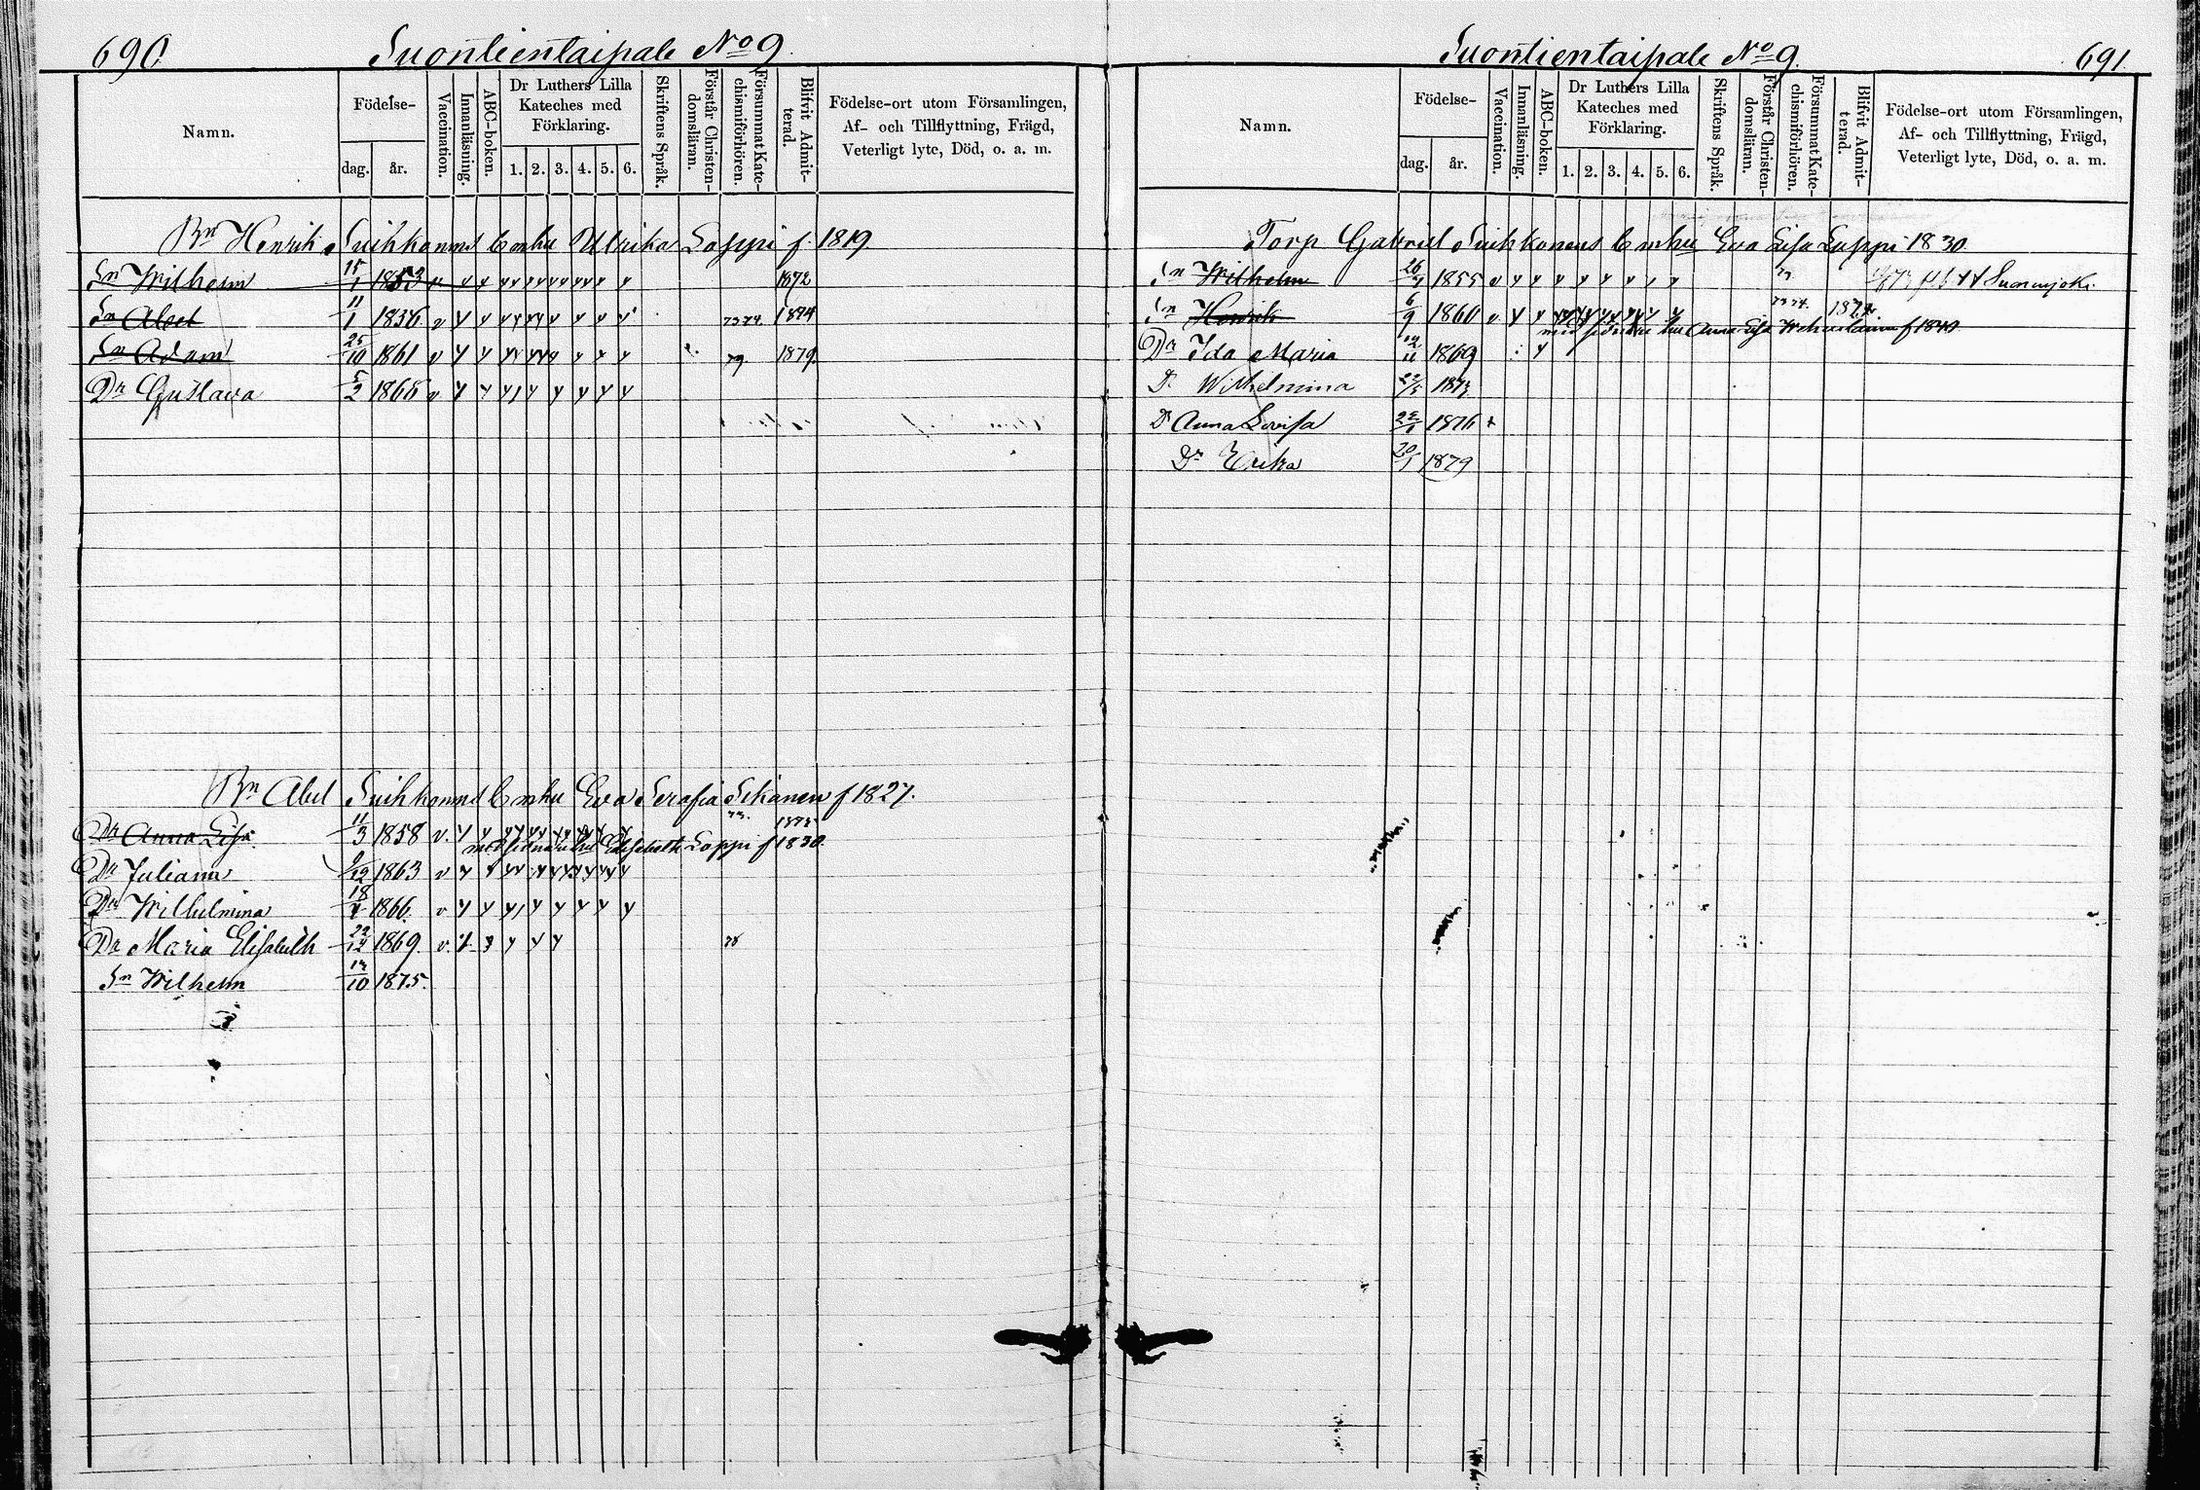 690 Suontientaipale No 9.
Namn.
Födelse-
dag.
år.
Vaccination.
Innanläsning.
ABC-boken.
Dr Luthers Lilla Kateches med Förklaring.
1. 2. 3. 4. 5. 6.
Skriftens Språk.
Förstår Christen-domsläran.
Försummat Kate-chismiförhören.
Blifvit Admit-terad.
Födelse-ort utom Församlingen,
Af- och Tillflyttning, Frägd,
Veterligt lyte, Död, o. a. m.
Bn Henrik Suihkonens Enka Ulrika Loppi f. 1819
Sn Wilhelm 15/1 1853 1872
Sn Abel 11/1 1856 v 73 74. 1874
Sn Adam 25/10 1861 v 79. 1879.
Dr Gustava 5/2 1865 v
Bn Abel Suihkonens Enka Eva Serafia Sikanen f 1827.
Dr Anna Lisa 11/3 1858 v.
Elisabeth Loppi f 1830.
Dr Juliana /12 1863 v
Dr Wilhelmina 18/4 1866. v
Dr Maria Elisabeth 22/12 1869. v. 78
Sn Wilhelm 13/10 1875.
Suontientaipale No 9. 691.
Namn.
Födelse-
dag.
år.
Vaccination.
Innanläsning.
ABC-boken.
Dr Luthers Lilla Kateches med Förklaring.
1. 2. 3. 4. 5. 6.
Skriftens Språk.
Förstår Christen-domsläran.
Försummat Kate-chismiförhören.
Blifvit Admit-terad.
Födelse-ort utom Församlingen,
Af- och Tillflyttning, Frägd,
Veterligt lyte, Död, o. a. m.
Torp Gabriel Suihkonens Enka Eva Lisa Loppi 1830
Sn Wilhelm 1855 v
Sn Henrik 6/9 1860 v 73 74. 187
Anna Lisa f 1849
Dr Ida Maria 1869
D. Wilhelmina 1873
Dr Anna Lovisa 1876
Dr Erika 1879